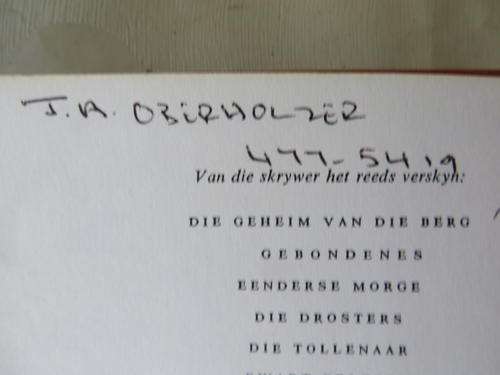 J.A. OBERHOLZER
477-5419
Van die skrywer het reeds verskyn:
DIE GEHEIM VAN DIE BERG
GEBONDENES
EENDERSE MORGE
DIE DROSTERS
DIE TOLLENAAR